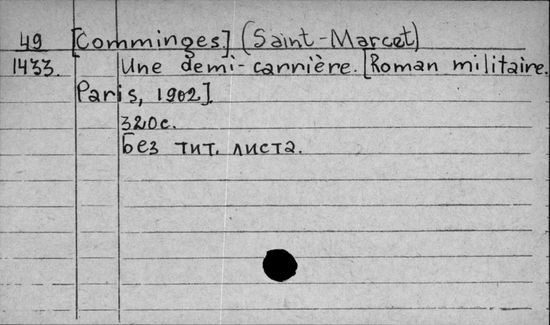 49 [Comminges] (Saint-Marcet)
1433. Une demi-carrière. [Roman militaire.
Paris, 1902].
320с.
Без тит. листа.